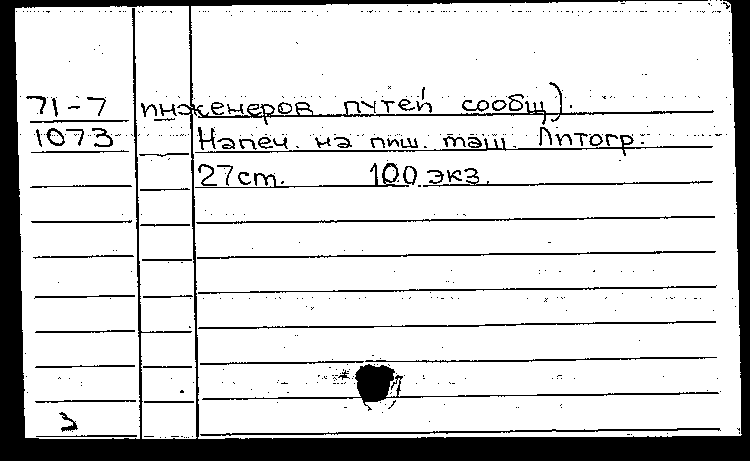 71-7 инженеров путей сообщ).
1073 Напеч. на пиш. маш. Литогр.
27см. 100 экз.